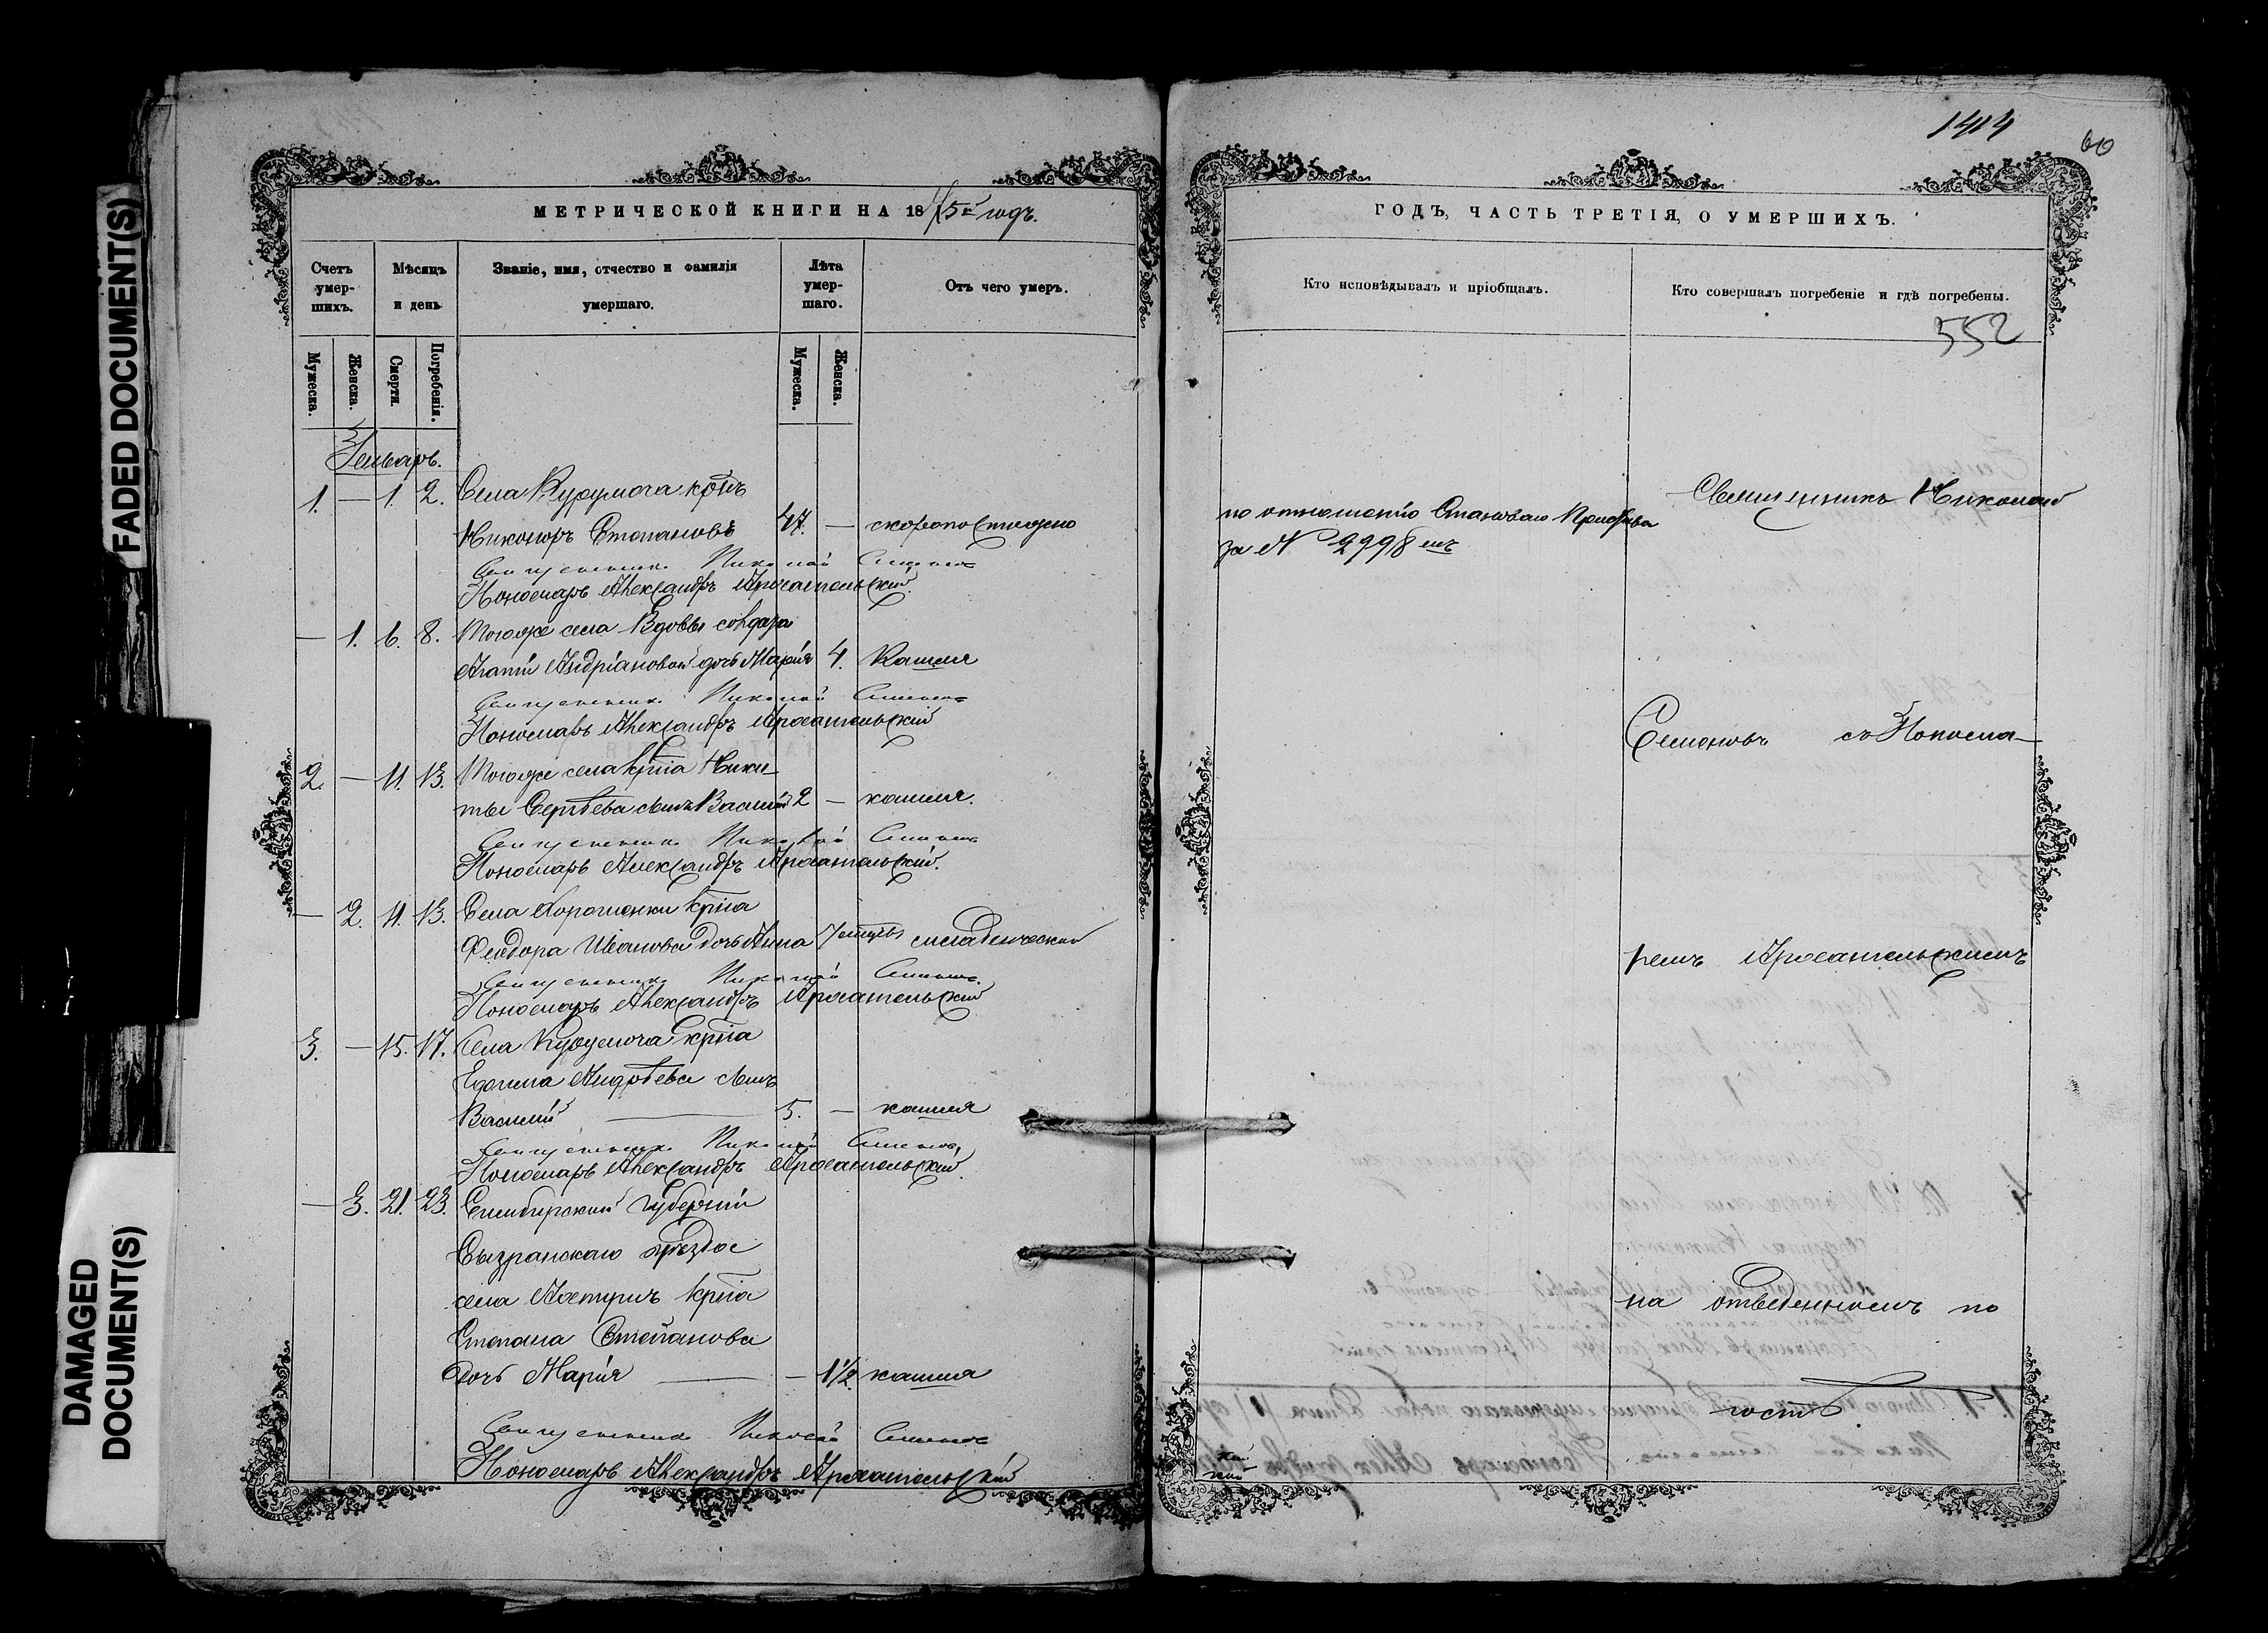 FADED DOCUMENT(S)
DAMAGED
DOCUMENT(S)
МЕТРИЧЕСКОЙ КНИГИ НА 1875й годъ.
Счетъ умер-шихъ.
Мѣсяцъ и день
Званіе, имя, отчество и фамилія умершаго.
Лѣта умер-шаго.
Отъ чего умеръ.
Мужеска.
Женска.
Смерти.
Погребенія.
Мужеска.
Женска.
Январь.
1. — 1. 2. Села Курумоча крнъ
Никоноръ Степановъ 47. — скоропостижно
Священникъ Николай Семеновъ
Пономарь Александръ Архангельскій.
— 1. 6. 8. Тогоже села Вдовы солдатки
Агапіи Андріановой дочь Марія 4. Кашля
Священникъ Николай Семеновъ
Пономарь Александръ Архангельскій
2. — 11. 13. Тогоже села крна Ники-
ты Сергѣева сынъ Василій 2 — кашля.
Священникъ Николай Семеновъ
Пономарь Александръ Архангельскій.
— 2. 11. 13. Села крна
Феодора Иванова дочь Анна младенческой
Священникъ Николай Семеновъ.
Пономарь Александръ Архангельскій
3. — 15. 17. Села Курумоча крна
Андрѣева сынъ
Василій — 5. — кашля
Священникъ Николай Семеновъ.
Пономарь Александръ Архангельскій.
— 3. 21. 23. Симбирской губерніи
Сызранскаго уѣзда
села крна
Степана Степанова
дочь Марія — — 1½. кашля
Священникъ Николай Семеновъ
Пономарь Александръ Архангельскій
1414
60
ГОДЪ, ЧАСТЬ ТРЕТІЯ, О УМЕРШИХЪ.
Кто исповѣдывалъ и пріобщалъ.
Кто совершалъ погребеніе и гдѣ погребены.
552
по отношенію Становаго Пристава
за № 2998мъ
Священникъ Николай
Семеновъ съ Понома-
ремъ Архангельскимъ
на отведенномъ по
гостѣ.